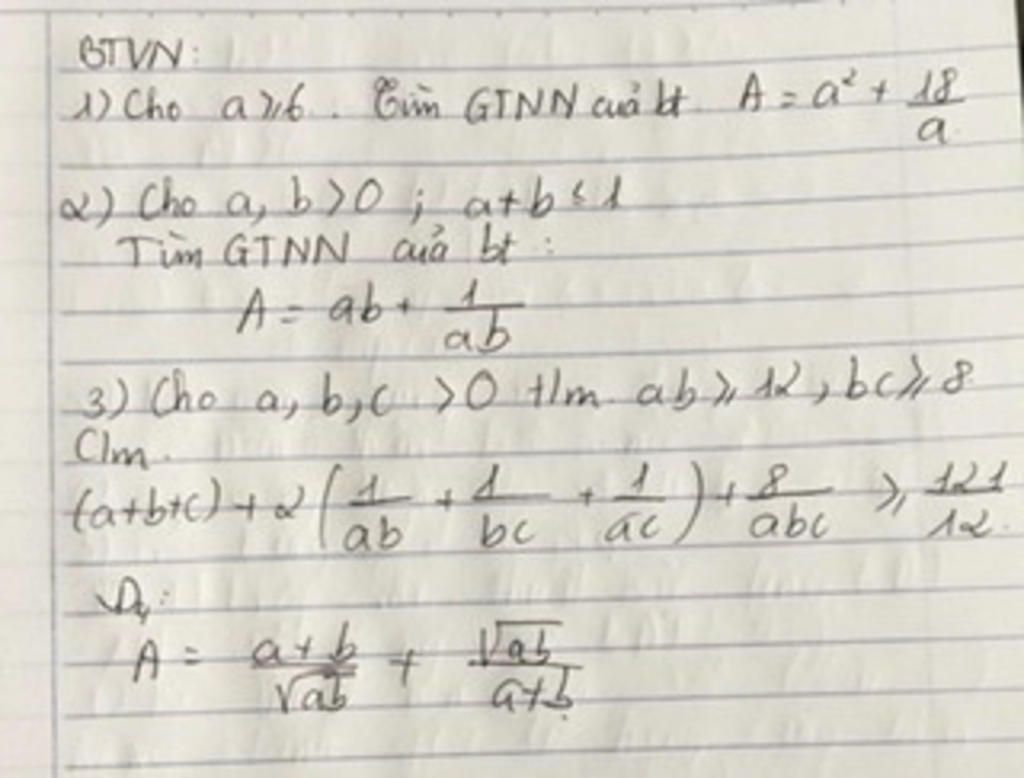 BTVN:
1) Cho a ≥ 6. Tìm GTNN của bt A = a² + 18/a
2) Cho a, b > 0 ; a+b ≤ 1
Tìm GTNN của bt :
A = ab + 1/ab
3) Cho a, b, c > 0 t/m ab ≥ 12, bc ≥ 8
C/m.
(a+b+c) + 2(1/ab + 1/bc + 1/ac) + 8/abc ≥ 121/12
VD:
A = (a+b)/√ab + √ab/(a+b)